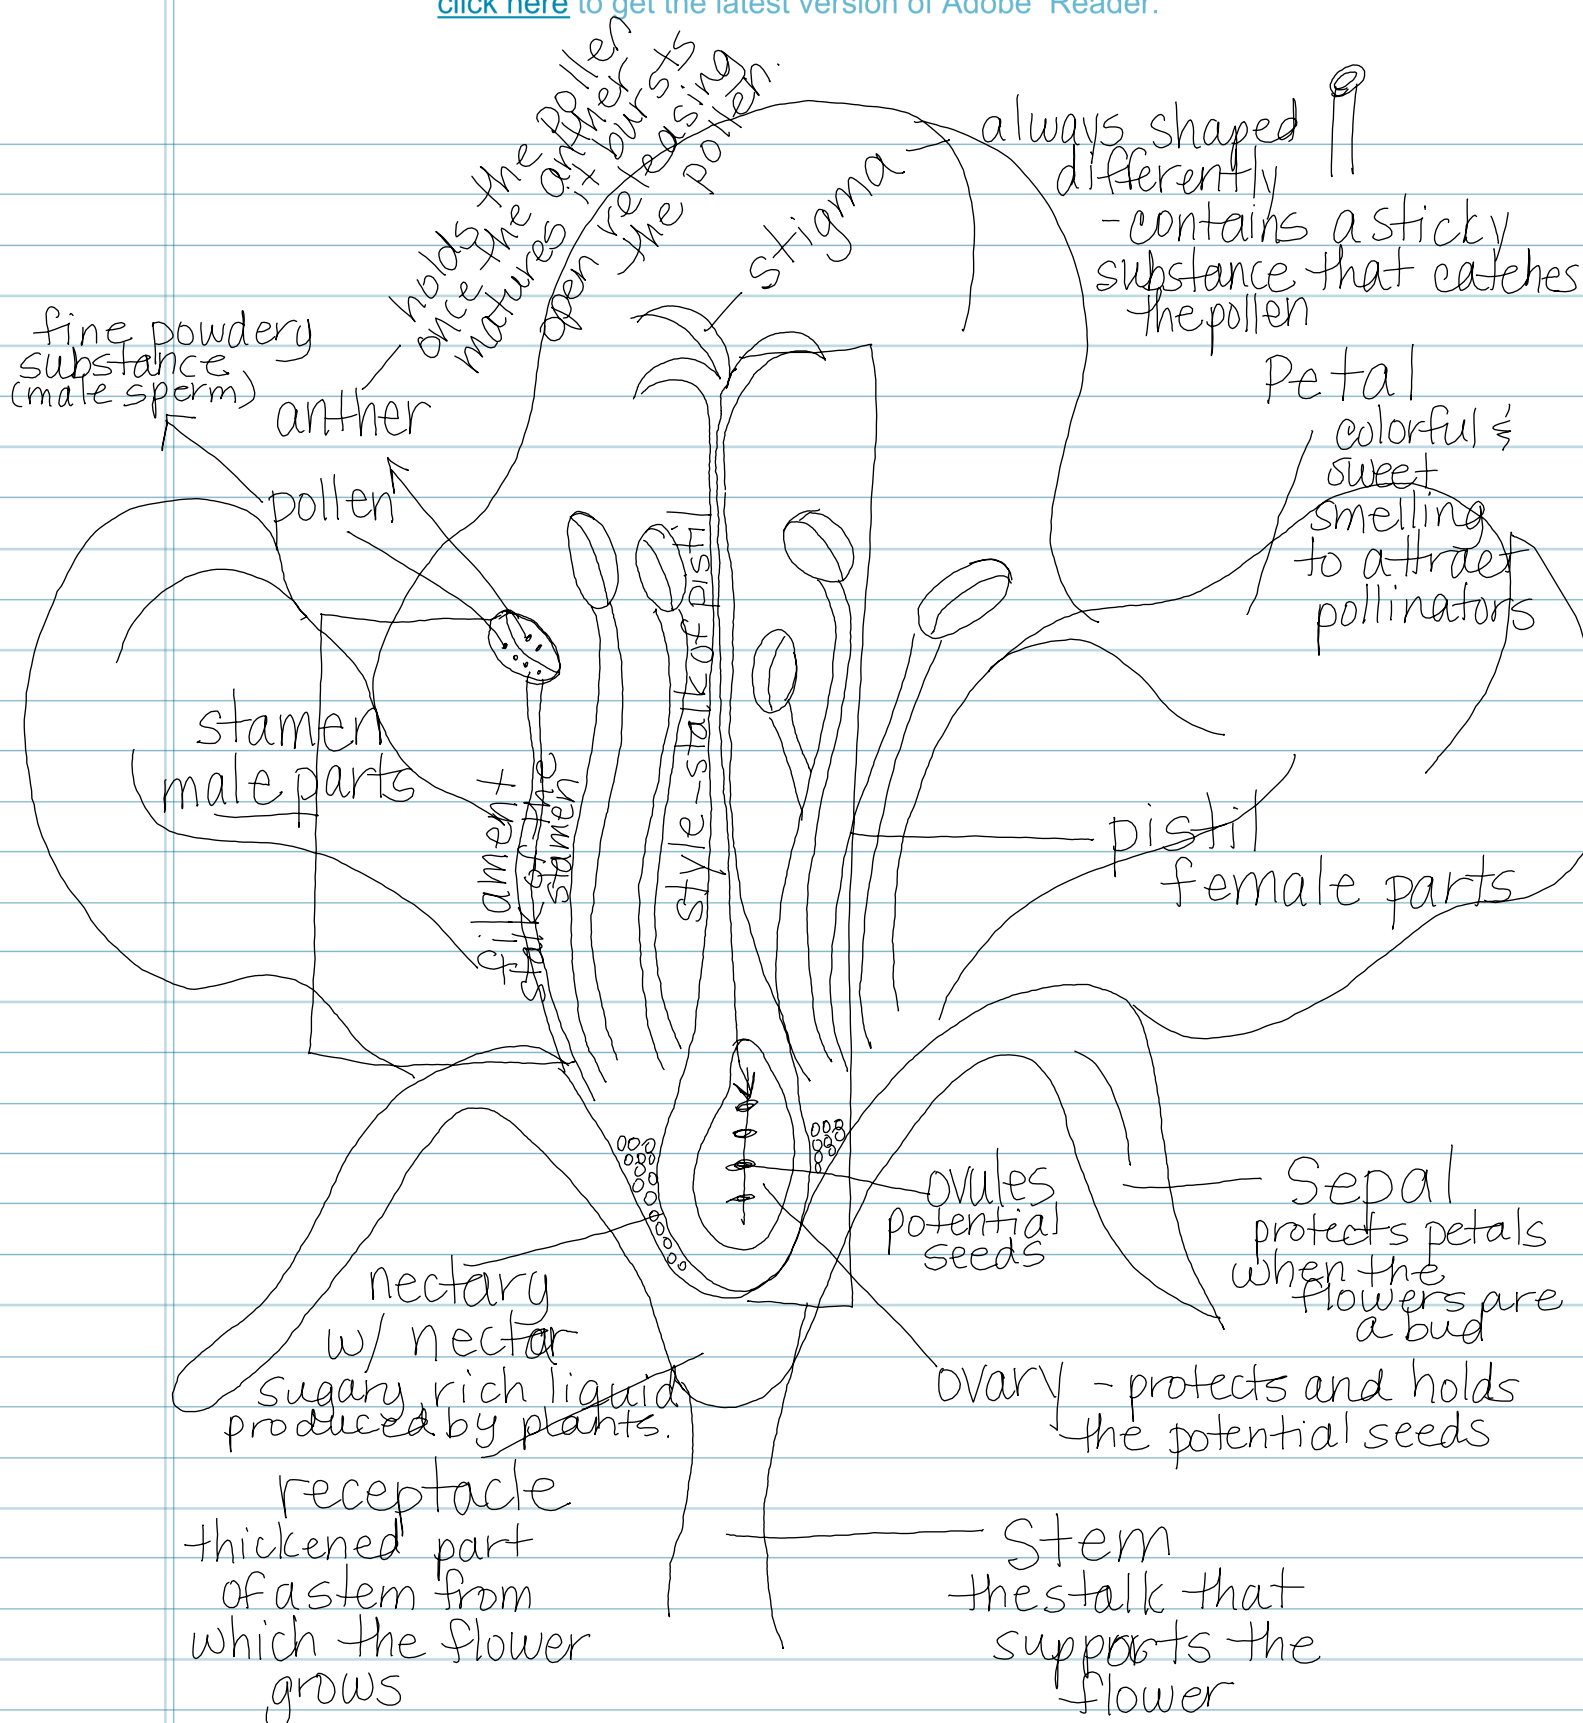 click here to get the latest version of Adobe Reader.
holds the pollen
once the anther
matures it bursts
open releasing
the pollen.
stigma
always shaped
differently
-contains a sticky
substance that catches
the pollen
fine powdery
substance
(male sperm)
anther
pollen
Petal
colorful &
sweet
smelling
to attract
pollinators
stamen
male parts
filament
stalk of the
stamen
style-stalk of pistil
pistil
female parts
ovules
potential
seeds
Sepal
protects petals
when the
flowers are
a bud
nectary
w/ nectar
sugary rich liquid
produced by plants.
ovary - protects and holds
the potential seeds
receptacle
thickened part
of a stem from
which the flower
grows
Stem
the stalk that
supports the
flower